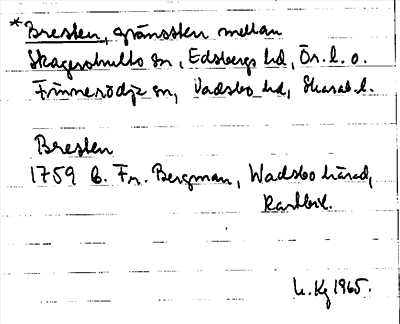 *Bresten, gränssten mellan
Skagershults sn, Edsbergs hd, Ör. l. o.
Finnerödja sn, Vadsbo hd, Skarab. l.
Bresten
1759 C. Fr. Bergman, Wadsbo härad,
Kartbil.
L. Kg 1965.